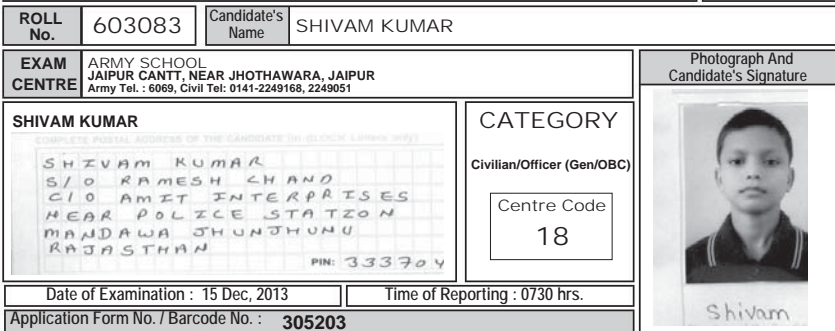 ROLL No. 603083 Candidate's Name SHIVAM KUMAR
EXAM CENTRE
ARMY SCHOOL
JAIPUR CANTT, NEAR JHOTHAWARA, JAIPUR
Army Tel. : 6069, Civil Tel: 0141-2249168, 2249051
Photograph And
Candidate's Signature
SHIVAM KUMAR
COMPLETE POSTAL ADDRESS OF THE CANDIDATE (in BLOCK Letters only)
SHIVAM KUMAR
S/O RAMESH CHAND
C/O AMIT INTERPRISES
NEAR POLICE STATION
MANDAWA JHUNJHUNU
RAJASTHAN
PIN: 333704
CATEGORY
Civilian/Officer (Gen/OBC)
Centre Code
18
Shivam
Date of Examination : 15 Dec, 2013 Time of Reporting : 0730 hrs.
Application Form No. / Barcode No. : 305203